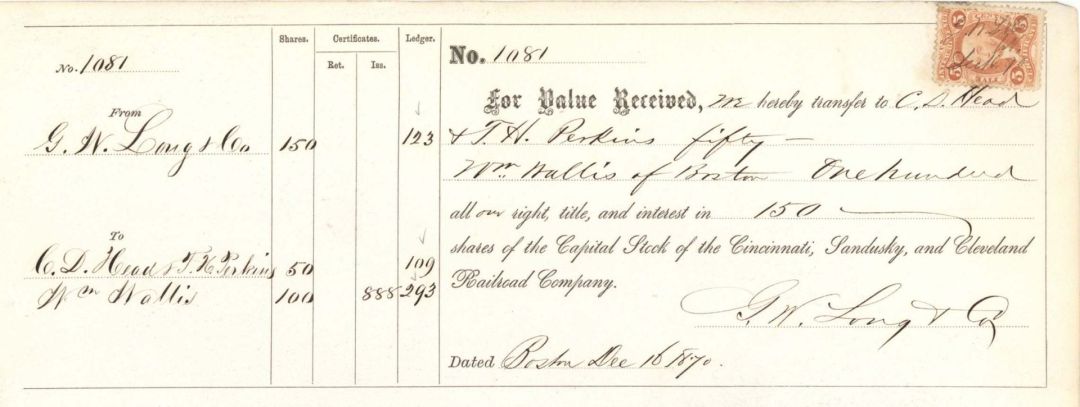 Shares. Certificates. Ledger.
Ret. Iss.
No. 1081
From
G. W. Long & Co 150 123
To
C. D. Head & T. H. Perkins 50 109
Wm Wallis 100 888 293
No. 1081
For Value Received, We hereby transfer to C. D. Head
& T. H. Perkins fifty —
Wm Wallis of Boston One hundred
all our right, title, and interest in 150
shares of the Capital Stock of the Cincinnati, Sandusky, and Cleveland
Railroad Company.
G. W. Long & Co
Dated Boston Dec 16 1870.
5 5
5 5